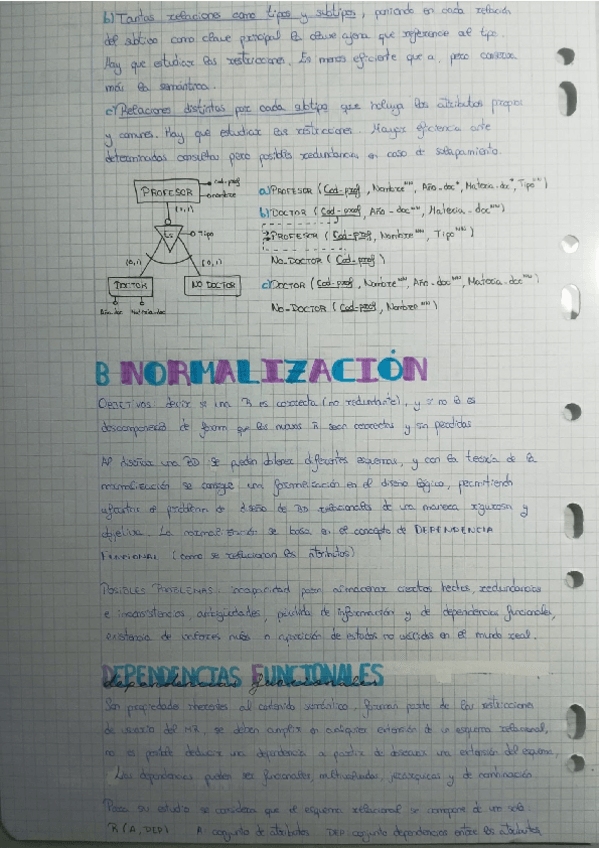 b) Tantas relaciones como tipos y subtipos, poniendo en cada relación
del subtipo como clave principal la clave ajena que referencia al tipo.
Hay que estudiar las restricciones. Es menos eficiente que a, pero conserva
más la semántica.
c) Relaciones distintas por cada subtipo que incluya los atributos propios
y comunes. Hay que estudiar las restricciones. Mayor eficiencia ante
determinadas consultas pero posibles redundancias en caso de solapamiento.
PROFESOR
cod-prof
nombre
(1,1)
Es
Tipo
(0,1)
(0,1)
DOCTOR
NO DOCTOR
Año-doc
Materia-doc
a) PROFESOR (Cod-prof, Nombre, Año-doc*, Materia-doc*, Tipo)
b) DOCTOR (Cod-prof, Año-doc, Materia-doc)
PROFESOR (Cod-prof, Nombre, Tipo)
NO-DOCTOR (Cod-prof)
c) DOCTOR (Cod-prof, Nombre, Año-doc, Materia-doc)
NO-DOCTOR (Cod-prof, Nombre)
B NORMALIZACIÓN
Objetivos: decir si una R es correcta (no redundante), y si no lo es
descomponerla de forma que las nuevas R sean correctas y sin pérdidas
Al diseñar una BD se pueden obtener diferentes esquemas, y con la teoría de la
normalización se consigue una formalización en el diseño lógico, permitiendo
el problema de diseño de BD relacionales de una manera rigurosa y
objetiva. La normalización se basa en el concepto de DEPENDENCIA
FUNCIONAL (como se relacionan los atributos)
POSIBLES PROBLEMAS: incapacidad para almacenar ciertos hechos, redundancias
e inconsistencias, ambigüedades, pérdida de información y de dependencias funcionales,
existencia de valores nulos o aparición de estados no válidos en el mundo real.
DEPENDENCIAS FUNCIONALES
dependencias funcionales
Son propiedades inherentes al contenido semántico, forman parte de las restricciones
de usuario del MR, se deben cumplir en cualquier extensión de un esquema relacional,
no es posible deducir una dependencia a partir de observar una extensión del esquema.
Las dependencias pueden ser funcionales, multivaluadas, jerárquicas y de combinación
Para su estudio se considera que el esquema relacional se compone de un solo:
R (A, DEP) A conjunto de atributos DEP conjunto dependencias entre los atributos